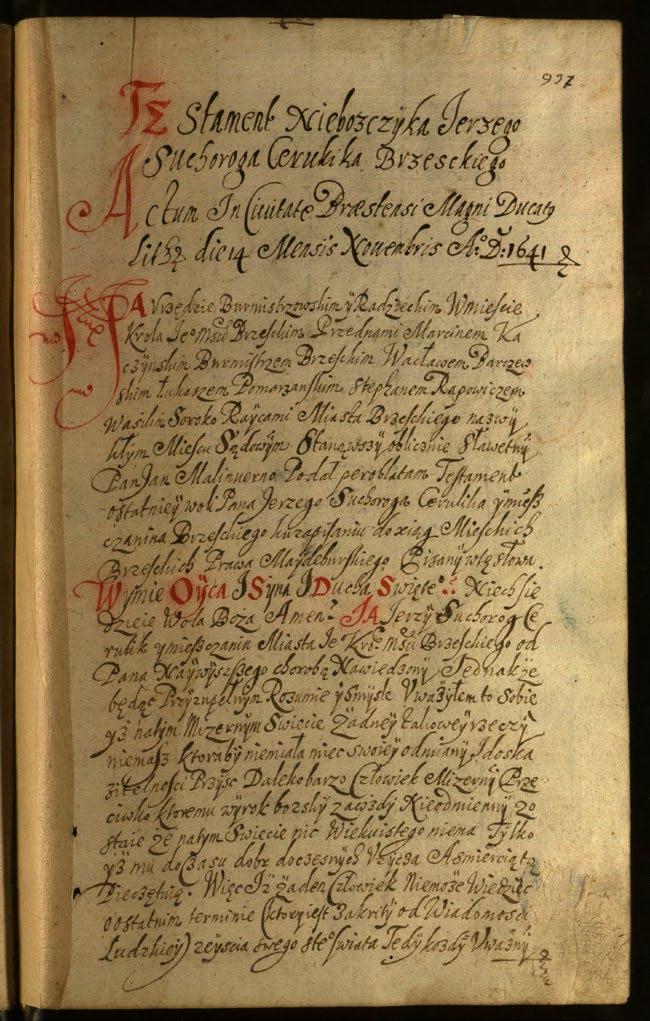 937
TEstament Nieboszczyka Jerzego
Suchoroga Cerulika Brzesckiego
Actum In Ciuitate Bræstensi Magni Ducatꝯ
Lithę die 14 Mensis Nouembris Aº. D: 1641
NA Vrzędzie Burmistrzowskim ÿ Radzieckim W mieście
Krola Jeº Mści Brzeskim Przed nami Marcinem Ka
czynskim Burmistrzem Brzeskim Wacławem Darczew
skim Łukaszem Pomarzanskim Stephanem Rapowiczem
Wasilim Soroko Raÿcami Miasta Brzeskiego na zwÿ
kłÿm Mieiscu Sądowÿm Stanąwszÿ oblicznie Sławetnÿ
Pan Jan Malinuerno Podał per oblatam Testament
ostatnieÿ woli Pana Jerzego Suchoroga Cerulika ÿ miesz
czanina Brzeskiego ku zapisaniu do xiąg Mieskich
Brzeskich Prawa Maÿdeburskiego Pisanÿ w te słowa.
W Jmie Oÿca I Sÿna I Ducha Swięteº. Niech sie
dzieie Wola Boza Amen. JA Jerzÿ Suchorog Ce
rulik ÿ mieszczanin Miasta Je Krº Mści Brzeskiego od
Pana Naÿwÿzszego chorobą Nawiedzonÿ Jednak ze
będąc Przÿ zupełnÿm Rozumie ÿ smÿsle Vważÿłem to Sobie
ÿz na tÿm Mizernÿm Swiecie Zadneÿ takoweÿ rzeczÿ
niemasz ktoraby niemiała miec swoieÿ odmianÿ I doska
Przÿsc Daleko barzo Człowiek Mizernÿ Prze
ciwko ktoremu wÿrok bozskÿ zawzdÿ Nieodmiennÿ zo
staie ze na tÿm Swiecie nic Wiekuistego niema Tÿlko
ÿz mu do Czasu dobr doczesnÿch Vzÿcza A smiercią to
Pieczętuię. Więc Iz żaden Człowiek Niemoże Wiedziec
o ostatnim terminie (ktorÿ iest zakritÿ od Wiadomosci
Ludzkieÿ) zeÿscia swego z teº Swiata Tedÿ kozdÿ Vważnÿ